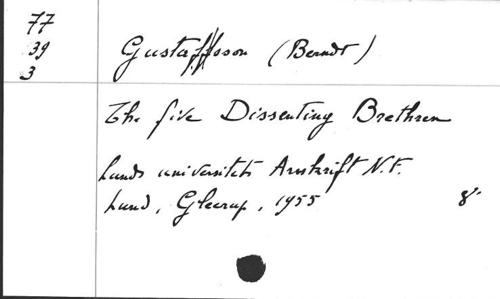 77
39
3
Gustaffsson (Berndt)
The five Dissenting Brethren
Lunds universitets Årsskrift N.F.
Lund, Gleerup, 1955 8°